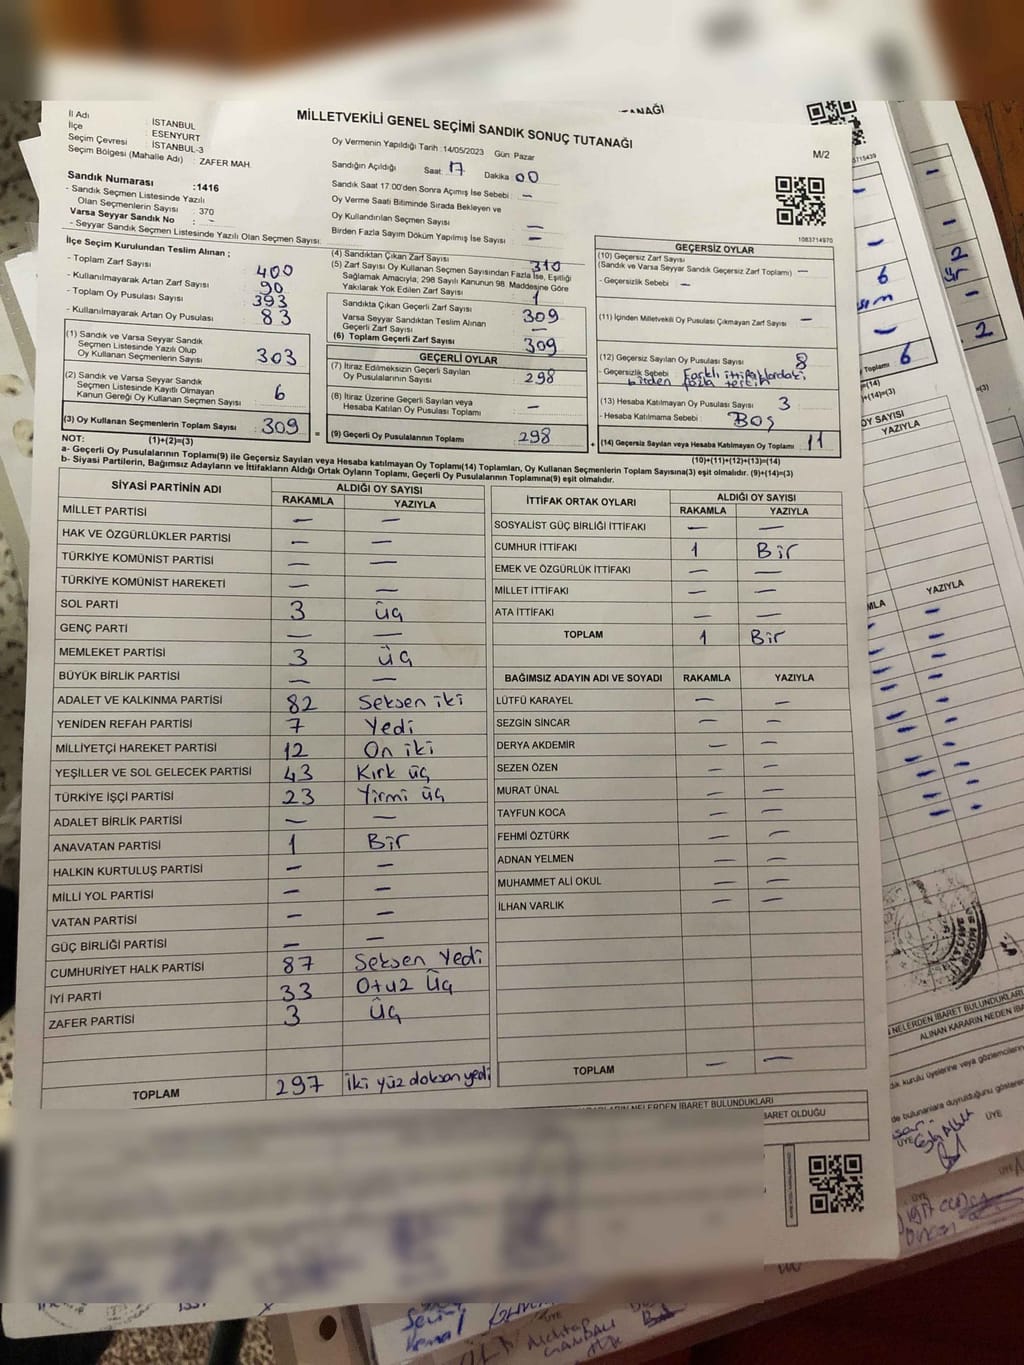 MİLLETVEKİLİ GENEL SEÇİMİ SANDIK SONUÇ TUTANAĞI
M/2
İl Adı : İSTANBUL
İlçe : ESENYURT
Seçim Çevresi : İSTANBUL-3
Seçim Bölgesi (Mahalle Adı) : ZAFER MAH.
Sandık Numarası :1416
- Sandık Seçmen Listesinde Yazılı
Olan Seçmenlerin Sayısı : 370
Varsa Seyyar Sandık No : -
- Seyyar Sandık Seçmen Listesinde Yazılı Olan Seçmen Sayısı:
Oy Vermenin Yapıldığı Tarih : 14/05/2023 Gün :Pazar
Sandığın Açıldığı Saat: 17 Dakika 00
Sandık Saat 17:00'den Sonra Açımış İse Sebebi : —
Oy Verme Saati Bitiminde Sırada Bekleyen ve
Oy Kullandırılan Seçmen Sayısı —
Birden Fazla Sayım Döküm Yapılmış İse Sayısı —
1083714970
İlçe Seçim Kurulundan Teslim Alınan ;
- Toplam Zarf Sayısı : 400
- Kullanılmayarak Artan Zarf Sayısı : 90
- Toplam Oy Pusulası Sayısı : 393
- Kullanılmayarak Artan Oy Pusulası : 83
(1) Sandık ve Varsa Seyyar Sandık
Seçmen Listesinde Yazılı Olup
Oy Kullanan Seçmenlerin Sayısı : 303
(2) Sandık ve Varsa Seyyar Sandık
Seçmen Listesinde Kayıtlı Olmayan
Kanun Gereği Oy Kullanan Seçmen Sayısı : 6
(3) Oy Kullanan Seçmenlerin Toplam Sayısı : 309
(4) Sandıktan Çıkan Zarf Sayısı : 310
(5) Zarf Sayısı Oy Kullanan Seçmen Sayısından Fazla İse, Eşitliği
Sağlamak Amacıyla; 298 Sayılı Kanunun 98. Maddesine Göre
Yakılarak Yok Edilen Zarf Sayısı : 1
Sandıkta Çıkan Geçerli Zarf Sayısı : 309
Varsa Seyyar Sandıktan Teslim Alınan
Geçerli Zarf Sayısı —
(6) Toplam Geçerli Zarf Sayısı : 309
GEÇERLİ OYLAR
(7) İtiraz Edilmeksizin Geçerli Sayılan
Oy Pusulalarının Sayısı : 298
(8) İtiraz Üzerine Geçerli Sayılan veya
Hesaba Katılan Oy Pusulası Toplamı : —
= (9) Geçerli Oy Pusulalarının Toplamı : 298
GEÇERSİZ OYLAR
(10) Geçersiz Zarf Sayısı
(Sandık ve Varsa Seyyar Sandık Geçersiz Zarf Toplamı) : —
- Geçersizlik Sebebi : —
(11) İçinden Milletvekili Oy Pusulası Çıkmayan Zarf Sayısı : —
(12) Geçersiz Sayılan Oy Pusulası Sayısı : 8
- Geçersizlik Sebebi : Farklı ittifaklardaki
birden fazla tercih
(13) Hesaba Katılmayan Oy Pusulası Sayısı : 3
- Hesaba Katılmama Sebebi : Boş
+ (14) Geçersiz Sayılan veya Hesaba Katılmayan Oy Toplamı : 11
NOT: (1)+(2)=(3)
(10)+(11)+(12)+(13)=(14)
a- Geçerli Oy Pusulalarının Toplamı(9) ile Geçersiz Sayılan veya Hesaba katılmayan Oy Toplamı(14) Toplamları, Oy Kullanan Seçmenlerin Toplam Sayısına(3) eşit olmalıdır. (9)+(14)=(3)
b- Siyasi Partilerin, Bağımsız Adayların ve İttifakların Aldığı Ortak Oyların Toplamı, Geçerli Oy Pusulalarının Toplamına(9) eşit olmalıdır.
SİYASİ PARTİNİN ADI ALDIĞI OY SAYISI
RAKAMLA YAZIYLA
MİLLET PARTİSİ — —
HAK VE ÖZGÜRLÜKLER PARTİSİ — —
TÜRKİYE KOMÜNİST PARTİSİ — —
TÜRKİYE KOMÜNİST HAREKETİ — —
SOL PARTİ 3 üç
GENÇ PARTİ — —
MEMLEKET PARTİSİ 3 üç
BÜYÜK BİRLİK PARTİSİ — —
ADALET VE KALKINMA PARTİSİ 82 Seksen iki
YENİDEN REFAH PARTİSİ 7 Yedi
MİLLİYETÇİ HAREKET PARTİSİ 12 On iki
YEŞİLLER VE SOL GELECEK PARTİSİ 43 Kırk üç
TÜRKİYE İŞÇİ PARTİSİ 23 Yirmi üç
ADALET BİRLİK PARTİSİ — —
ANAVATAN PARTİSİ 1 Bir
HALKIN KURTULUŞ PARTİSİ — —
MİLLİ YOL PARTİSİ — —
VATAN PARTİSİ — —
GÜÇ BİRLİĞİ PARTİSİ — —
CUMHURİYET HALK PARTİSİ 87 Seksen Yedi
İYİ PARTİ 33 Otuz Üç
ZAFER PARTİSİ 3 Üç
TOPLAM 297 iki yüz doksan yedi
İTTİFAK ORTAK OYLARI ALDIĞI OY SAYISI
RAKAMLA YAZIYLA
SOSYALİST GÜÇ BİRLİĞİ İTTİFAKI — —
CUMHUR İTTİFAKI 1 Bir
EMEK VE ÖZGÜRLÜK İTTİFAKI — —
MİLLET İTTİFAKI — —
ATA İTTİFAKI — —
TOPLAM 1 Bir
BAĞIMSIZ ADAYIN ADI VE SOYADI RAKAMLA YAZIYLA
LÜTFÜ KARAYEL — —
SEZGİN SİNCAR — —
DERYA AKDEMİR — —
SEZEN ÖZEN — —
MURAT ÜNAL — —
TAYFUN KOCA — —
FEHMİ ÖZTÜRK — —
ADNAN YELMEN — —
MUHAMMET ALİ OKUL — —
İLHAN VARLIK — —
TOPLAM — —
NELERDEN İBARET BULUNDUKLARI
BARET OLDUĞU
TANAĞI
Toplamı : 6
=(14)
)+(14)=(3)
OY SAYISI
YAZIYLA
MLA YAZIYLA
NELERDEN İBARET BULUNDUKLARI
ALINAN KARARIN NEDEN İBA
dik kurulu üyelerine veya gözlemcilerin
de bulunanlara duyrulduğunu gösteren
ÜYE ÜYE